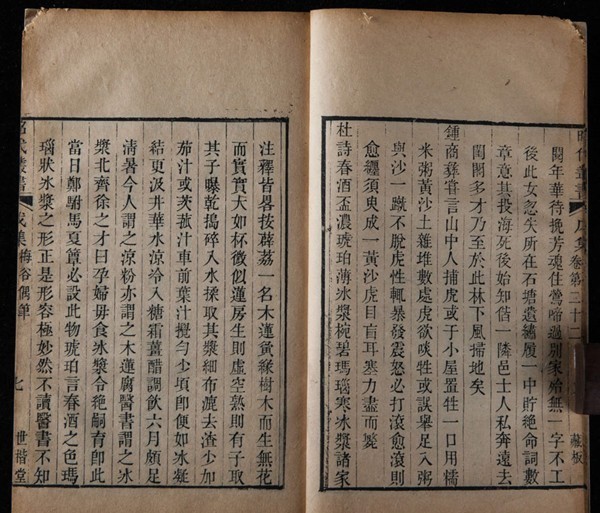 戊集卷第三十二 藏板
閱年華待挽芳魂住鶯啼過別家始無一字不工
後此女忽失所在石塘遺繡履一中貯絶命詞數
章意其投海死後始知偕一隣邑士人私奔遠去
閨閣多才乃至於此林下風掃地矣
鍾商彝嘗言山中人捕虎或于小屋置牲一口用懦
米粥黃沙土雜堆數處虎欲啖牲或誤舉足入粥
與沙一蹴不脫虎性輒暴發震怒必打滾愈滾則
愈纏須臾成一黃沙虎目盲耳塞力盡而斃
杜詩春酒盃濃琥珀薄冰漿椀碧瑪瑙寒冰漿諸家
注釋皆畧按薜荔一名木蓮夤緣樹木而生無花
而實實大如杯微似蓮房生則虛空熟則有子取
其子曝乾搗碎入水揉取其漿細布漉去渣少加
茄汁或茨菰汁車前葉汁攪勻少頃卽便如冰凝
結更汲井華水涼冷入糖霜薑醋調飲六月頗足
清暑今人謂之涼粉亦謂之木蓮腐醫書謂之冰
漿北齊徐之才曰孕婦毋食冰漿令絕嗣育卽此
當日鄭駙馬夏簟必設此物琥珀言春酒之色瑪
瑙狀冰漿之形正是形容極妙然不讀醫書不知
昭代叢書 戊集梅谷偶筆 七 世楷堂